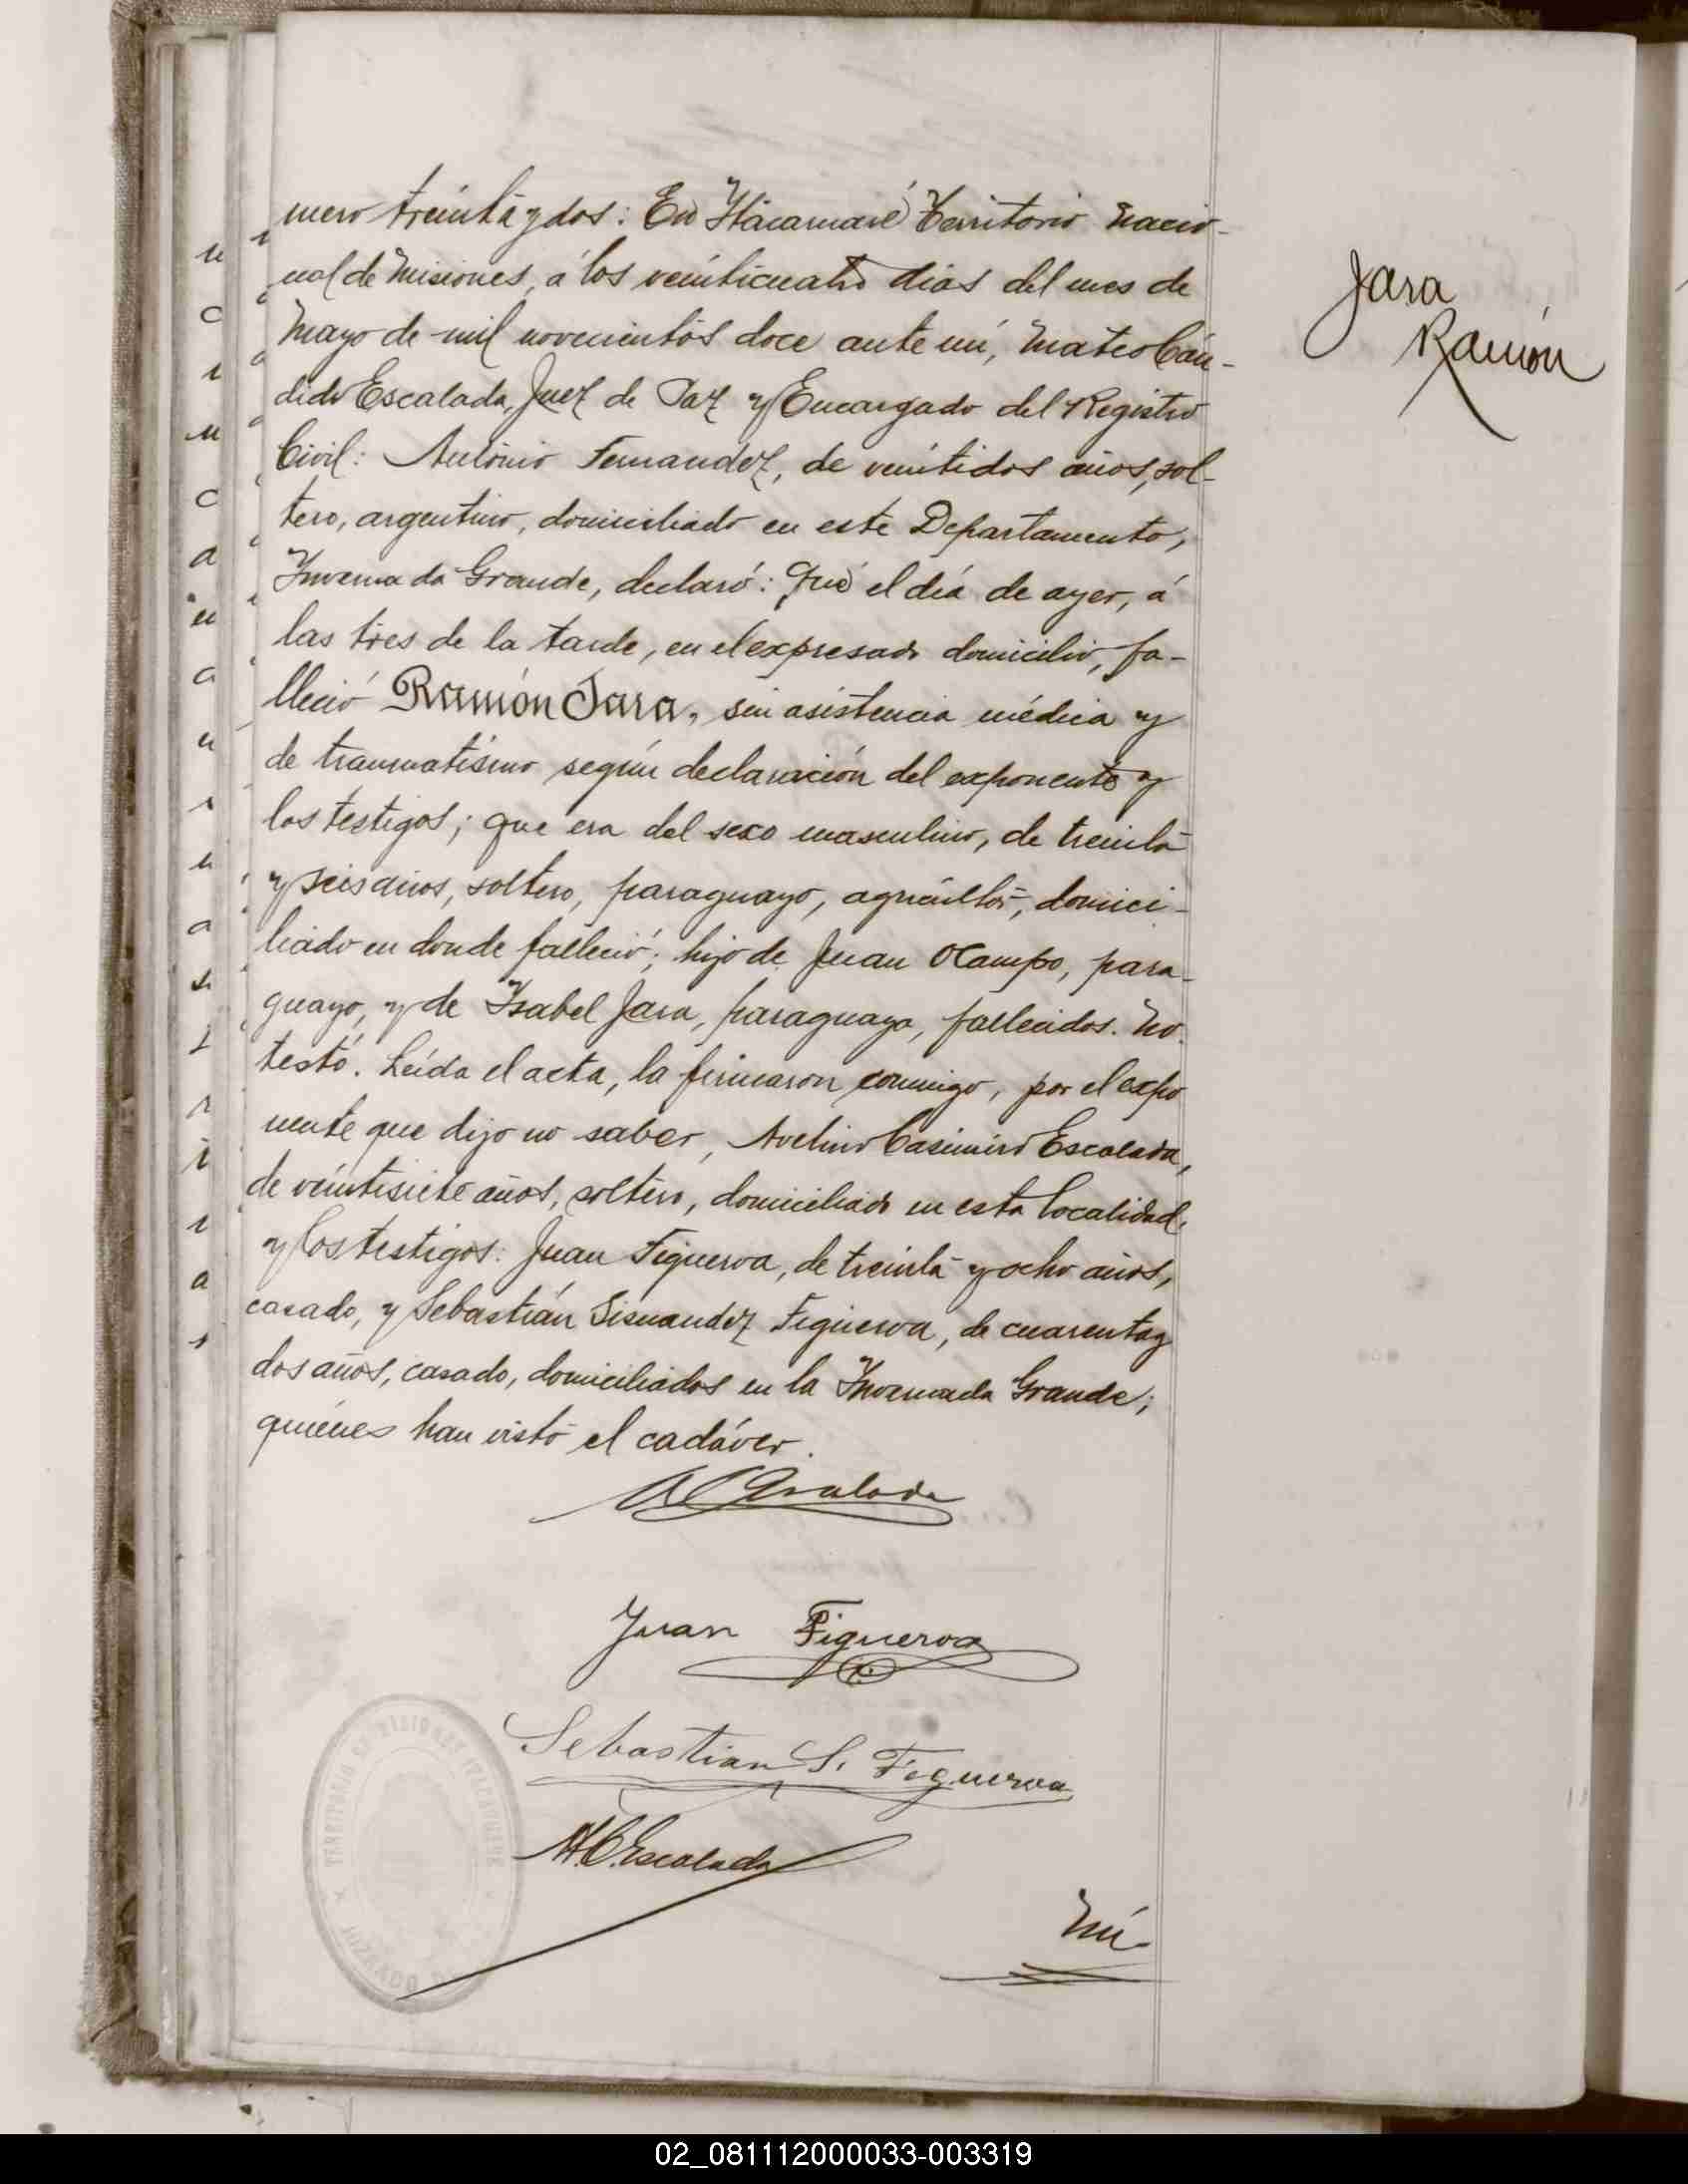 mero treinta y dos: En Itacaruaré Territorio Nacio-
nal de Misiones, á los veinticuatro dias del mes de
Mayo de mil novecientos doce ante mí, Mateo Cán-
dido Escalada, Juez de Paz y Encargado del Registro
Civil: Antonio Fernandez, de veintidos años, sol-
tero, argentino, domiciliado en este Departamento,
Invernada Grande, declaró: Que el día de ayer, á
las tres de la tarde, en el expresado domicilio, fa-
lleció Ramón Jara, sin asistencia médica y
de traumatismo según declaración del exponente y
los testigos; que era del sexo masculino, de treinta
y seis años, soltero, paraguayo, agricultor, domici-
liado en donde falleció; hijo de Juan Ocampo, para-
guayo, y de Isabel Jara, paraguaya, fallecidos. No
testó. Leída el acta, la firmaron conmigo, por el expo
nente que dijo no saber, Avelino Casimiro Escalada,
de veintisiete años, soltero, domiciliado en esta localidad,
y los testigos: Juan Figueroa, de treinta y ocho años,
casado, y Sebastián Sisnandez Figueroa, de cuarenta y
dos años, casado, domiciliados en la Invernada Grande;
quienes han visto el cadáver.
A C Escalada
Juan Figueroa
Sebastian S. Figueroa
M. C. Escalada
Nú-
Jara
Ramón
TERRITORIO DE MISIONES
JUZGADO
02_081112000033-003319